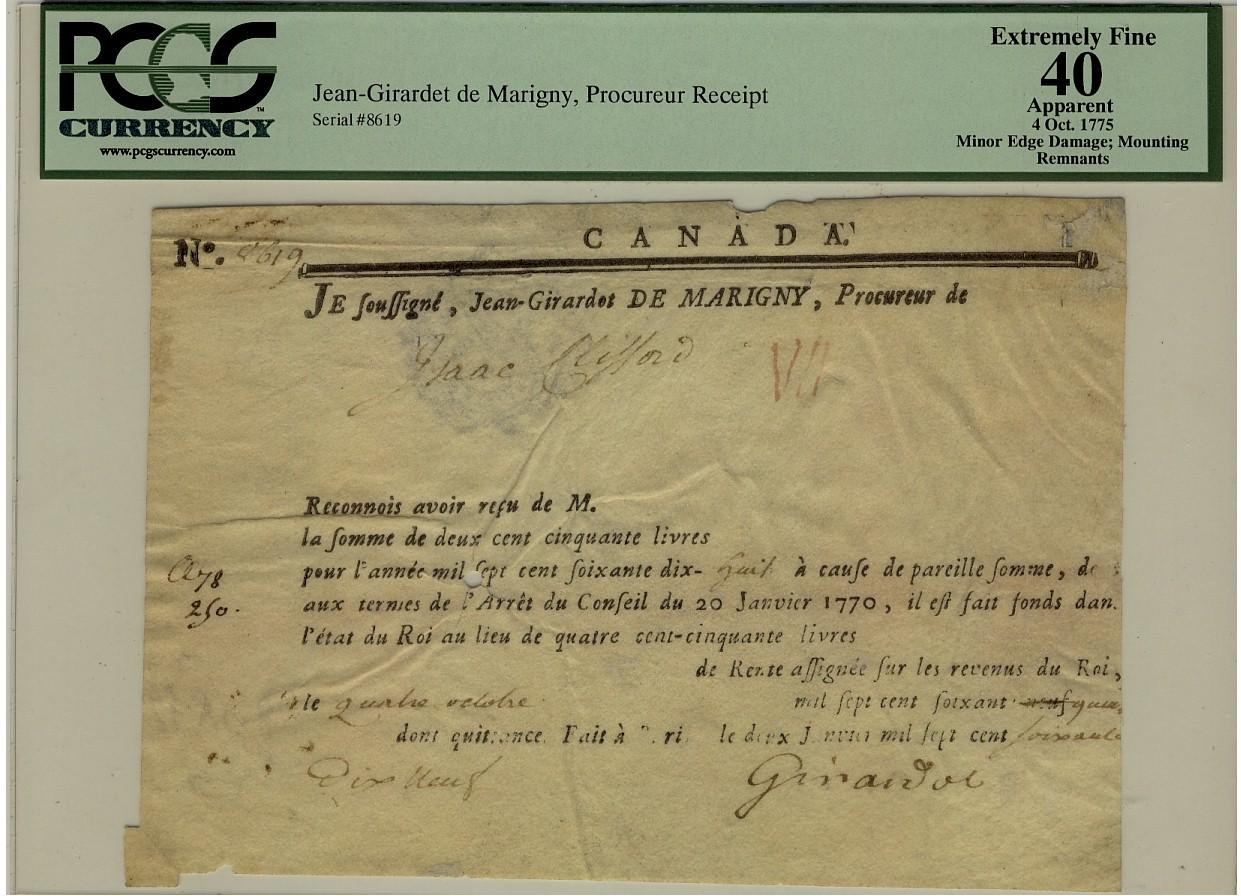 PCGS
CURRENCY™
www.pcgscurrency.com
Jean-Girardet de Marigny, Procureur Receipt
Serial #8619
Extremely Fine
40
Apparent
4 Oct. 1775
Minor Edge Damage; Mounting
Remnants
CANADA.
Nº. 8619
JE souſſigné, Jean-Girardot DE MARIGNY, Procureur de
Isaac Clifford VII
Reconnois avoir reçu de M.
la ſomme de deux cent cinquante livres
Cl 78 pour l'année mil ſept cent ſoixante dix- huit à cauſe de pareille ſomme, de
250. aux termes de l'Arrêt du Conſeil du 20 Janvier 1770, il eſt fait fonds dan
l'état du Roi au lieu de quatre cent-cinquante livres
de Rente aſſignée ſur les revenus du Roi,
le quatre octobre mil ſept cent ſoixant neuf
dont quittance. Fait à le deux Janvier mil ſept cent soixante
Dix Neuf Girardot